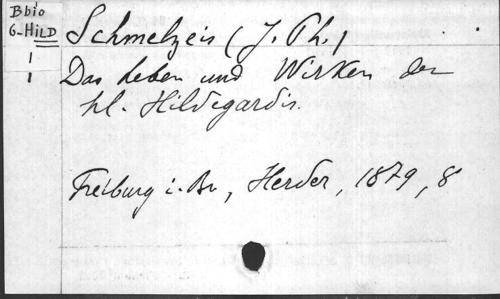 Bbio
G-HILD
1
1
Schmelzeis (J. Ph.)
Das Leben und Wirken der
hl. Hildegardis.
Freiburg i. Br, Herder, 1879, 8°